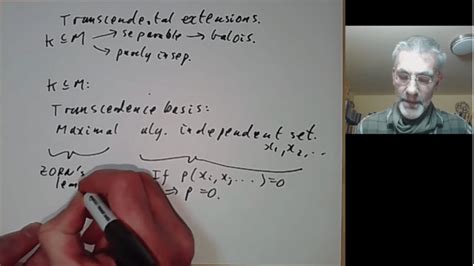 Transcendental extensions.
K ⊆ M → separable → Galois.
→ purely insep.
K ⊆ M:
Transcendence basis:
Maximal aly. independent set.
x₁, x₂, ...
Zorn's If p(xᵢ, xⱼ, ...) = 0
lem ⇒ p = 0.